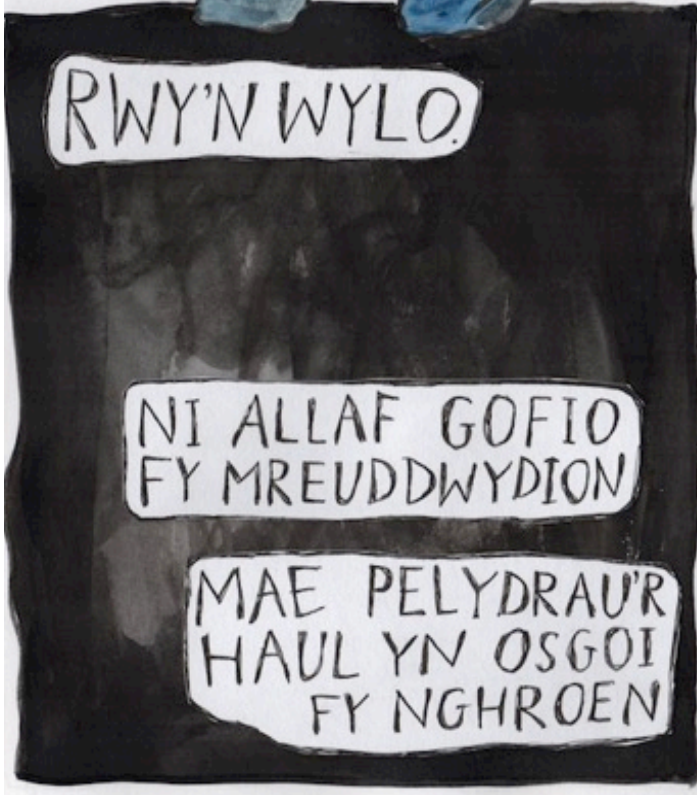 RWY'N WYLO.
NI ALLAF GOFIO
FY MREUDDWYDION
MAE PELYDRAU'R
HAUL YN OSGOI
FY NGHROEN